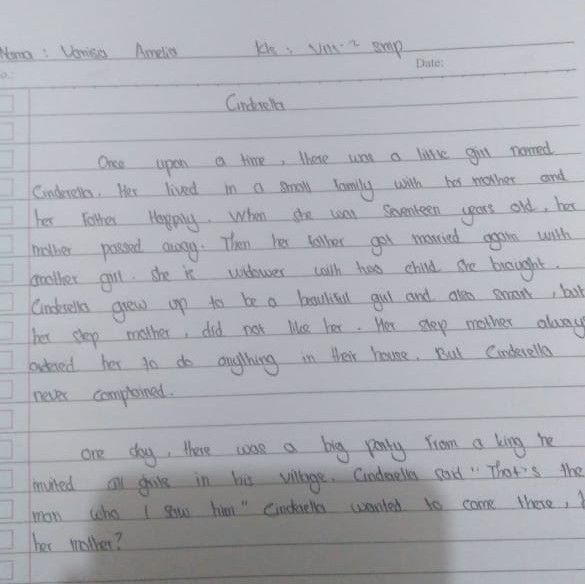 Nama : Vanisa Amelia Kls : VIII-2 smp
o.: Date:
Cinderella
Once upon a time, there was a little girl named
Cinderella. Her lived in a small family with her mother and
her Father Happily. When she was Seventeen years old, her
mother passed away. Then her father got married again with
another girl. She is widower with had child she brought.
Cinderella grew up to be a beautiful girl and also smart, but
her step mother, did not like her. Her step mother alway
ordered her to do anything in their house. But Cinderella
never complained.
One day, there was a big party from a king he
invited all in his village. Cinderella said "That's the
man who I saw him" Cinderella wanted to come there,
her mother?